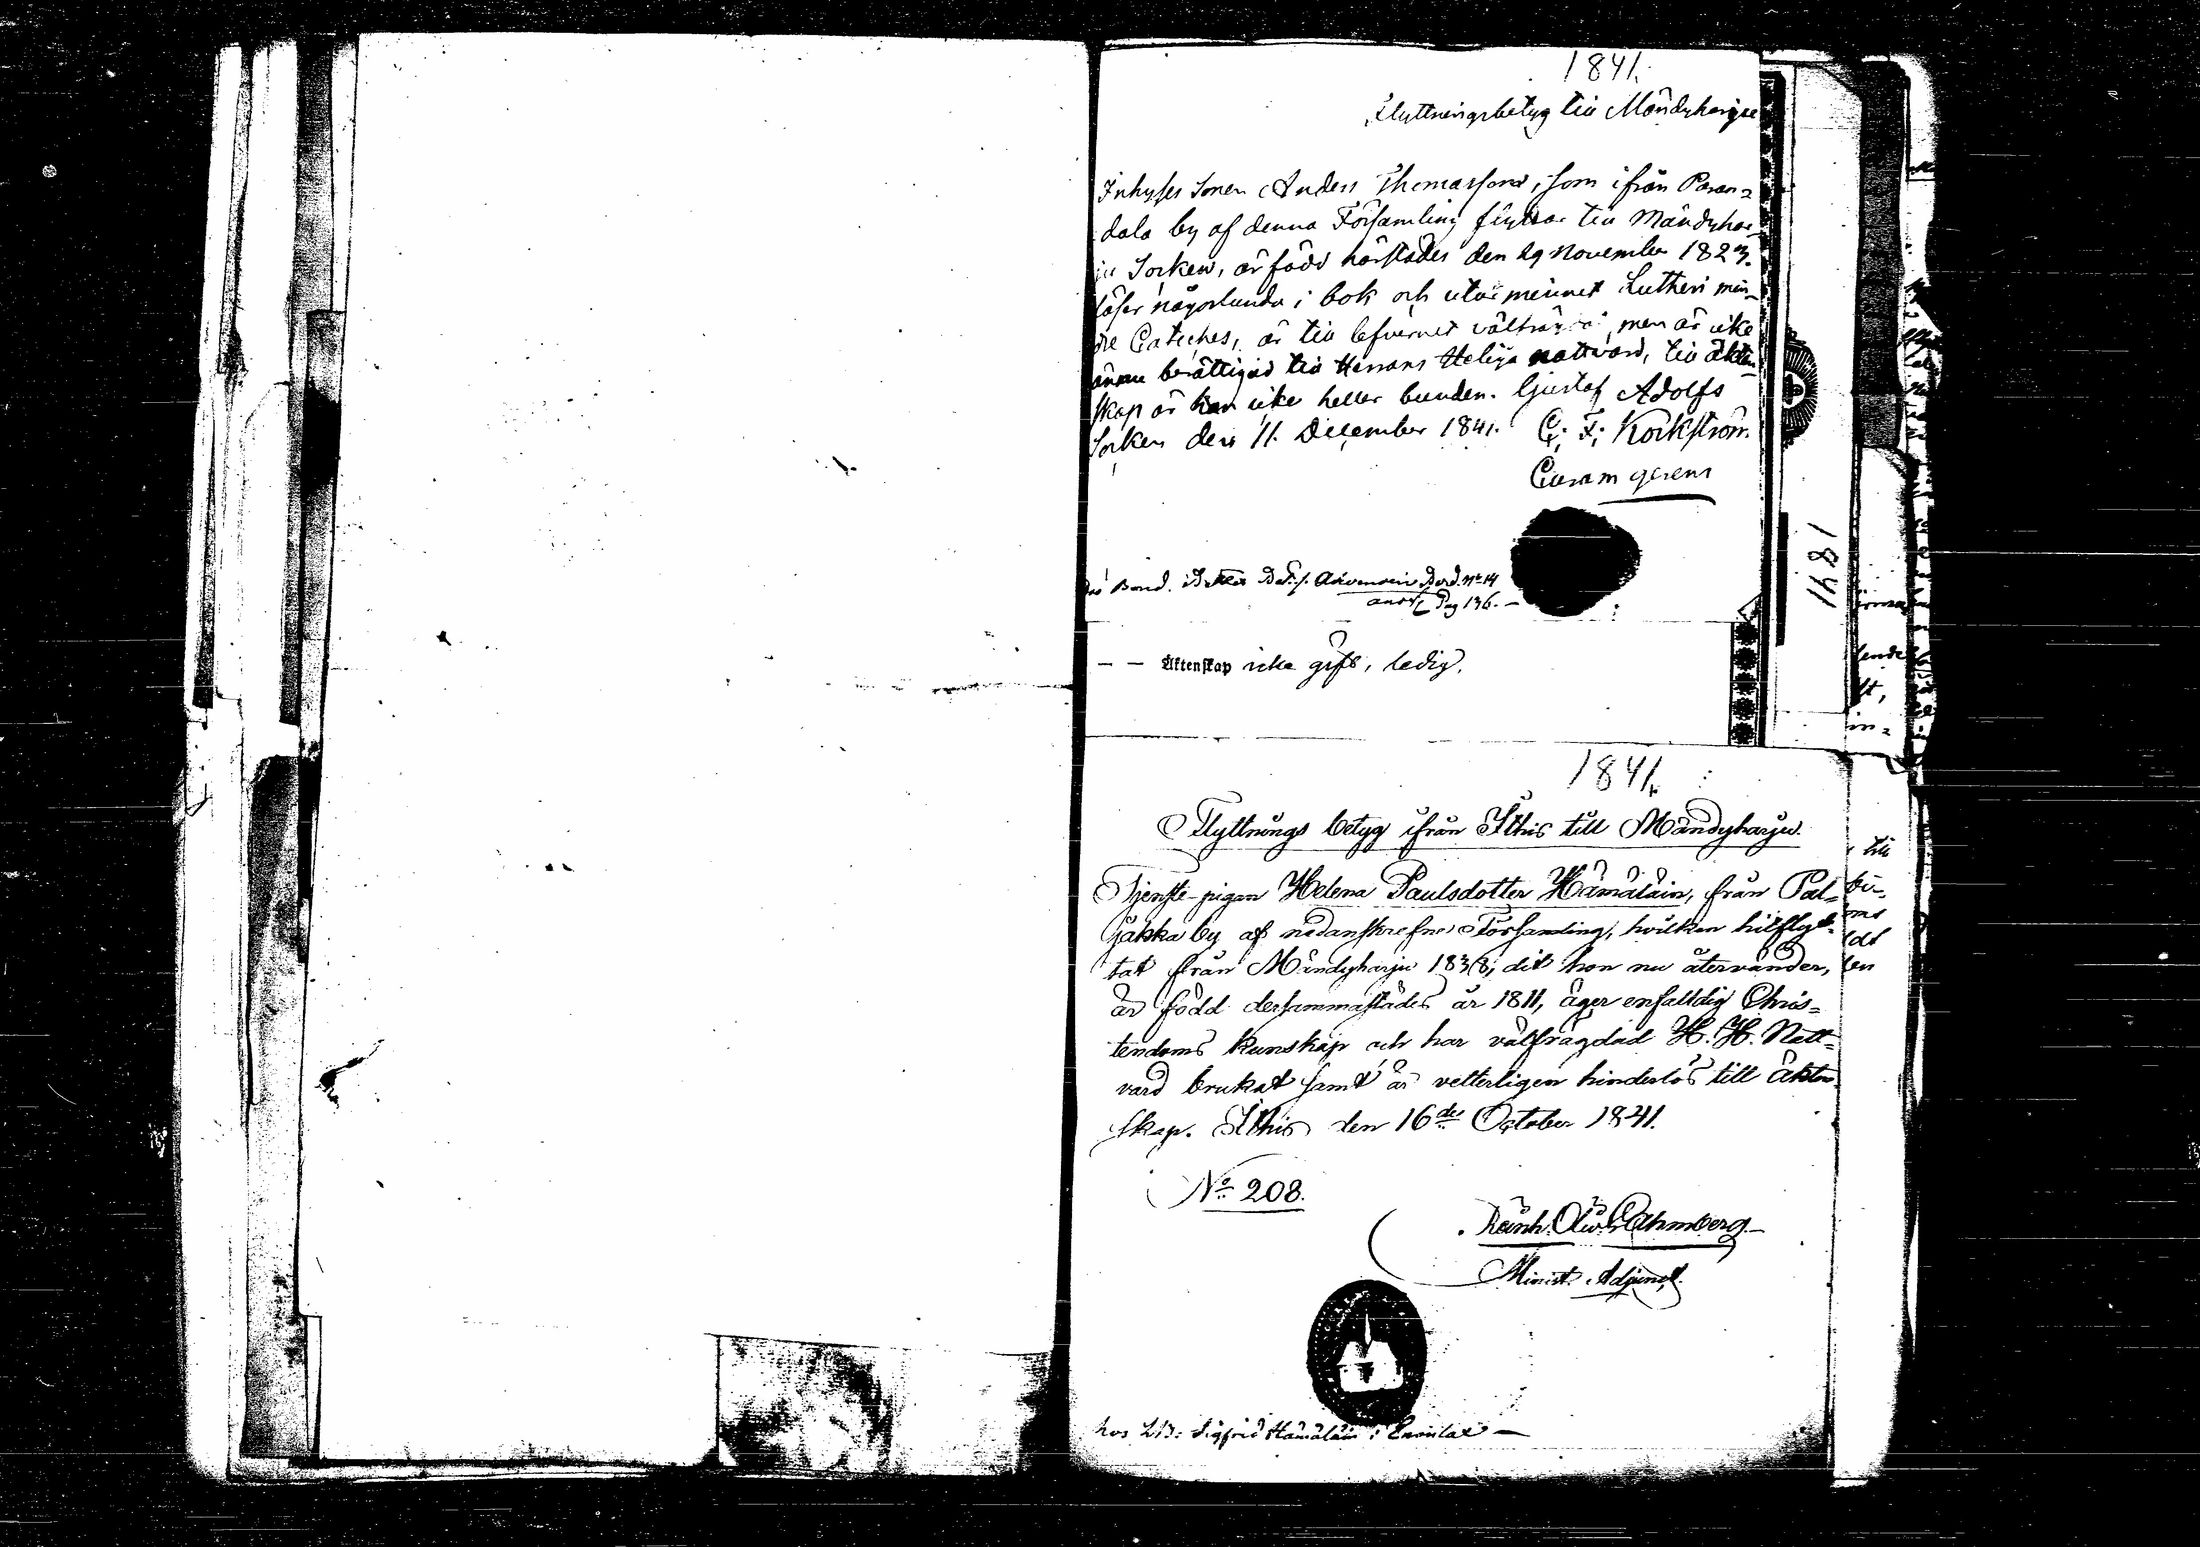 1841.
Flyttningsbetyg till Mändyharju
Inhyses Sonen Anders Thomasson, som ifrån Paran=
dala by af denna Församling flyttar till Mändyhar=
ju Socken, är född härstädes den 29 November 1823.
läser någorlunda i bok och utur minnet Lutheri min=
dre Cateches, är till lefvernet välfräjdad, men är icke
ännu berättigad till Herrans Heliga nattvard, till äkten=
skap är han icke heller bunden. Gustaf Adolfs
Socken den 11. December 1841. C. F. Kockström.
Curam gerens
Bond. No 14
Pag 136. —
— — Äktenskap icke gift, ledig.
1841
1841.
Flyttnings betyg ifrån Ithis till Mändyharju.
Tjenste-pigan Helena Paulsdotter Hämäläin, från Pal=
jakka by af nedanskrefne Församling, hvilken hitflyt=
tat från Mändyharju 1838, dit hon nu återvänder,
är född dersammastädes år 1811, äger enfaldig Chris=
tendoms kunskap och har välfrägdad H. H. Natt=
vard brukat samt är vetterligen hinderlös till Äkten=
skap. Ithis den 16de October 1841.
No 208.
Reinh. Ahmberg
Minist. Adjunct.
hos Sigfrid Hämäläin i —